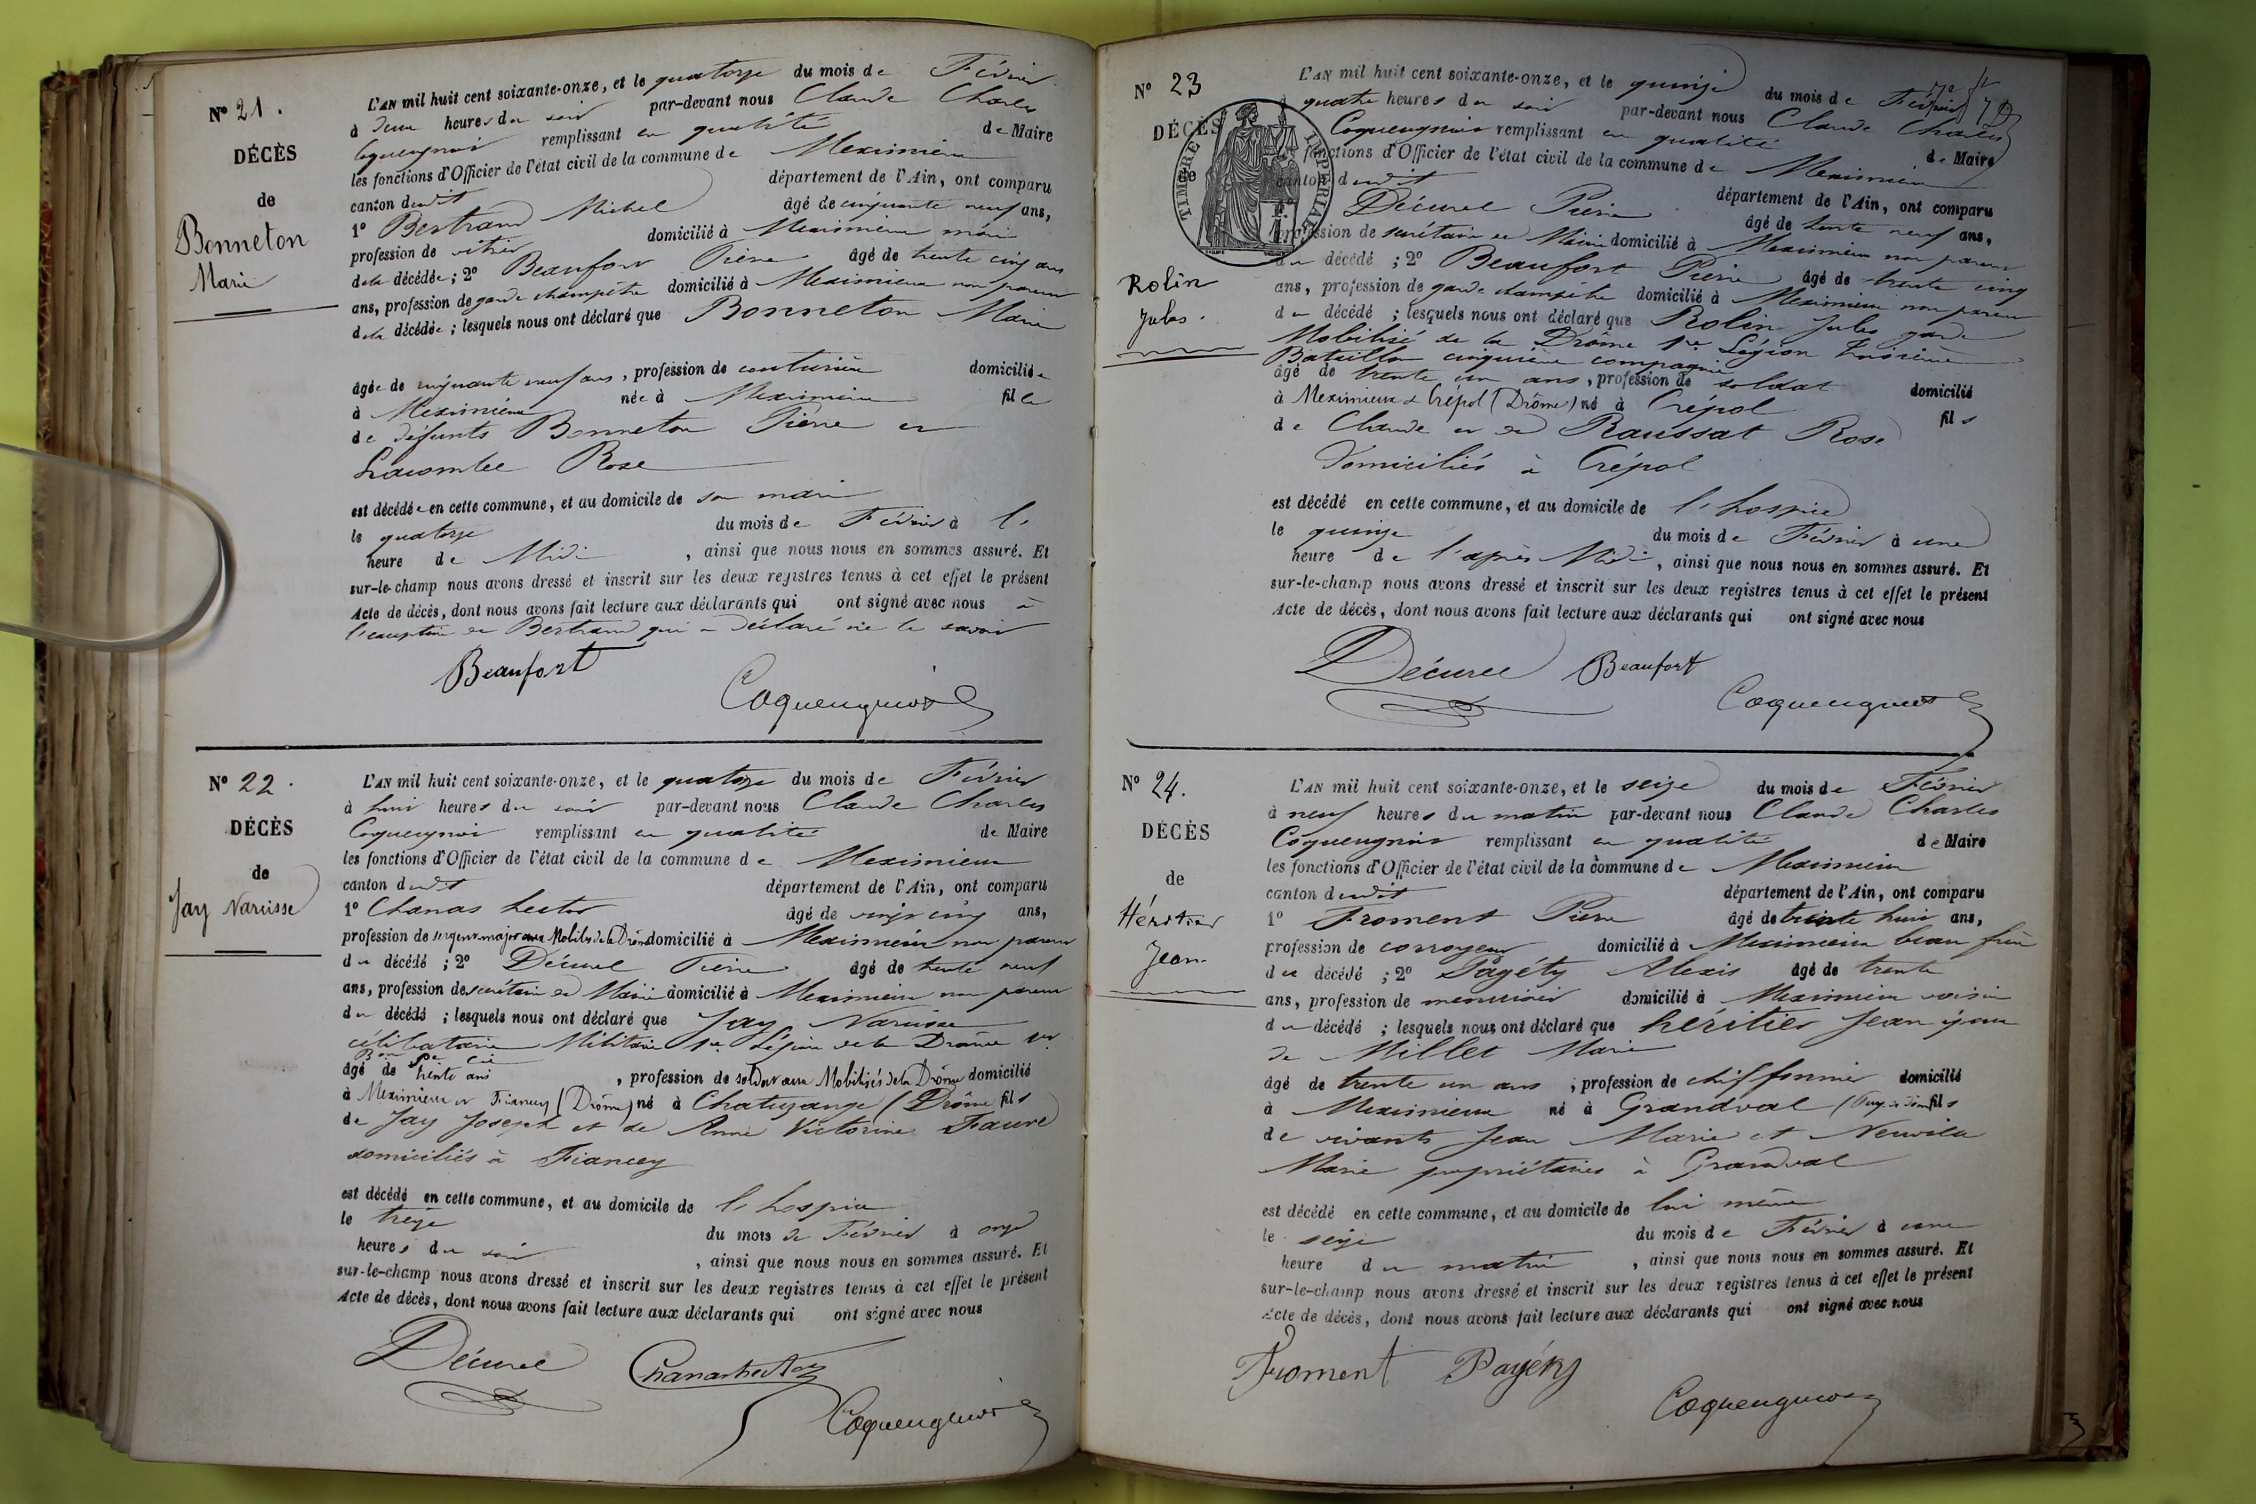 Nº 21.
DÉCÈS
de
Bonneton
Marie
L'AN mil huit cent soixante-onze, et le quatorze du mois de Février
à deux heures du soir par-devant nous Claude Charles
Coquengniot remplissant en qualité de Maire
les fonctions d'Officier de l'état civil de la commune de Meximieux
canton dudit département de l'Ain, ont comparu
1º Bertrand Michel âgé de cinquante neuf ans,
profession de vitrier domicilié à Meximieux mari
de la décédée ; 2º Beaufort Pierre âgé de trente cinq ans
ans, profession de garde champêtre domicilié à Meximieux non parent
de la décédée ; lesquels nous ont déclaré que Bonneton Marie
âgée de cinquante neuf ans, profession de couturière domiciliée
à Meximieux née à Meximieux fille
de défunts Bonneton Pierre et
Lacombe Rose
est décédée en cette commune, et au domicile de son mari
le quatorze du mois de Février à l'
heure de Midi, ainsi que nous nous en sommes assuré. Et
sur-le-champ nous avons dressé et inscrit sur les deux registres tenus à cet effet le présent
Acte de décès, dont nous avons fait lecture aux déclarants qui ont signé avec nous à
l'exception de Bertrand qui a déclaré ne le savoir
Beaufort
Coquengniot
Nº 22.
DÉCÈS
de
Jay Narcisse
L'AN mil huit cent soixante-onze, et le quatorze du mois de Février
à huit heures du soir par-devant nous Claude Charles
Coquengniot remplissant en qualité de Maire
les fonctions d'Officier de l'état civil de la commune de Meximieux
canton dudit département de l'Ain, ont comparu
1º Chanas hector âgé de vingt cinq ans,
profession de sergent major aux Mobiles de la Drôme domicilié à Meximieux non parent
du décédé ; 2º Décurel Pierre âgé de trente neuf
ans, profession de secrétaire de Mairie domicilié à Meximieux non parent
du décédé ; lesquels nous ont déclaré que Jay Narcisse
célibataire Militaire 1re Légion de la Drôme
âgé de trente ans, profession de soldat aux Mobilisés de la Drôme domicilié
à Meximieux et Fiancey (Drôme) né à Chatuzange (Drôme fils
de Jay Joseph et de Anne Victorine Faure
domiciliés à Fiancey
est décédé en cette commune, et au domicile de l'hospice
le treize du mois de Février à onze
heures du soir, ainsi que nous nous en sommes assuré. Et
sur-le-champ nous avons dressé et inscrit sur les deux registres tenus à cet effet le présent
Acte de décès, dont nous avons fait lecture aux déclarants qui ont signé avec nous
Décurel
Chanas hector
Coquengniot
Nº 23
DÉCÈS
de
Rolin
Jules.
TIMBRE IMPERIAL
L'AN mil huit cent soixante-onze, et le quinze du mois de Février
à quatre heures du soir par-devant nous Claude Charles
Coquengniot remplissant en qualité de Maire
les fonctions d'Officier de l'état civil de la commune de Meximieux
canton dudit département de l'Ain, ont comparu
Décurel Pierre âgé de trente neuf ans,
profession de secrétaire de Mairie domicilié à Meximieux non parent
du décédé ; 2º Beaufort Pierre âgé de trente cinq
ans, profession de garde champêtre domicilié à Meximieux non parent
du décédé ; lesquels nous ont déclaré que Rolin Jules garde
Mobilisé de la Drôme 1re Légion troisième
Bataillon cinquième compagnie
âgé de trente un ans, profession de soldat domicilié
à Meximieux & Crépol (Drôme) né à Crépol fils
de Claude et de Raussat Rose
domiciliés à Crépol
est décédé en cette commune, et au domicile de l'hospice
le quinze du mois de Février à une
heure de l'après Midi, ainsi que nous nous en sommes assuré. Et
sur-le-champ nous avons dressé et inscrit sur les deux registres tenus à cet effet le présent
Acte de décès, dont nous avons fait lecture aux déclarants qui ont signé avec nous
Décurel Beaufort
Coquengniot
Nº 24.
DÉCÈS
de
Héritier
Jean
L'AN mil huit cent soixante-onze, et le seize du mois de Février
à neuf heures du matin par-devant nous Claude Charles
Coquengniot remplissant en qualité de Maire
les fonctions d'Officier de l'état civil de la commune de Meximieux
canton dudit département de l'Ain, ont comparu
1º Froment Pierre âgé de trente huit ans,
profession de corroyeur domicilié à Meximieux beau frère
du décédé ; 2º Pagéty Alexis âgé de trente
ans, profession de menuisier domicilié à Meximieux voisin
du décédé ; lesquels nous ont déclaré que héritier Jean époux
de Millet Marie
âgé de trente un ans ; profession de chiffonnier domicilié
à Meximieux né à Grandval (Puy de Dôme fils
de vivants Jean Marie et
Marie propriétaires à Grandval
est décédé en cette commune, et au domicile de lui même
le seize du mois de Février à une
heure du matin, ainsi que nous nous en sommes assuré. Et
sur-le-champ nous avons dressé et inscrit sur les deux registres tenus à cet effet le présent
Acte de décès, dont nous avons fait lecture aux déclarants qui ont signé avec nous
Froment
Coquengniot